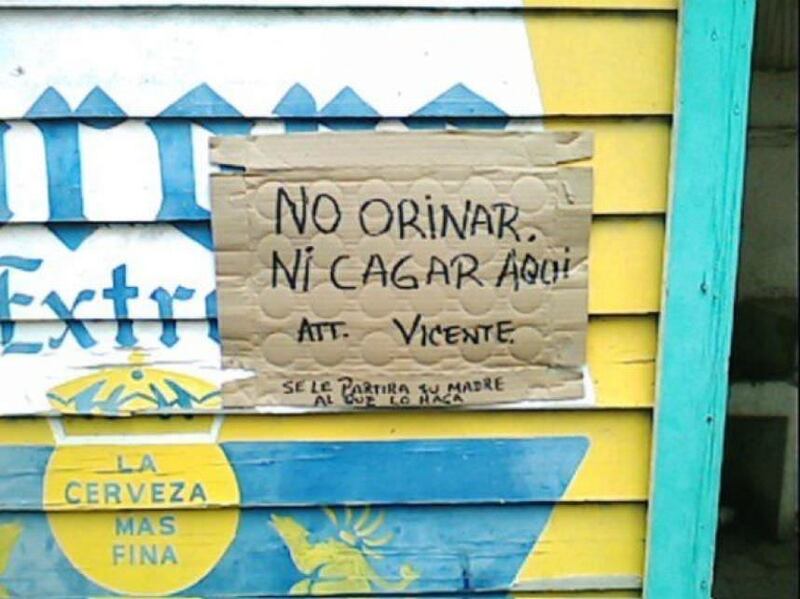 Extr
NO ORINAR.
NI CAGAR AQUI
ATT. VICENTE.
SE LE PARTIRA SU MADRE
AL QUE LO HAGA
LA
CERVEZA
MAS
FINA